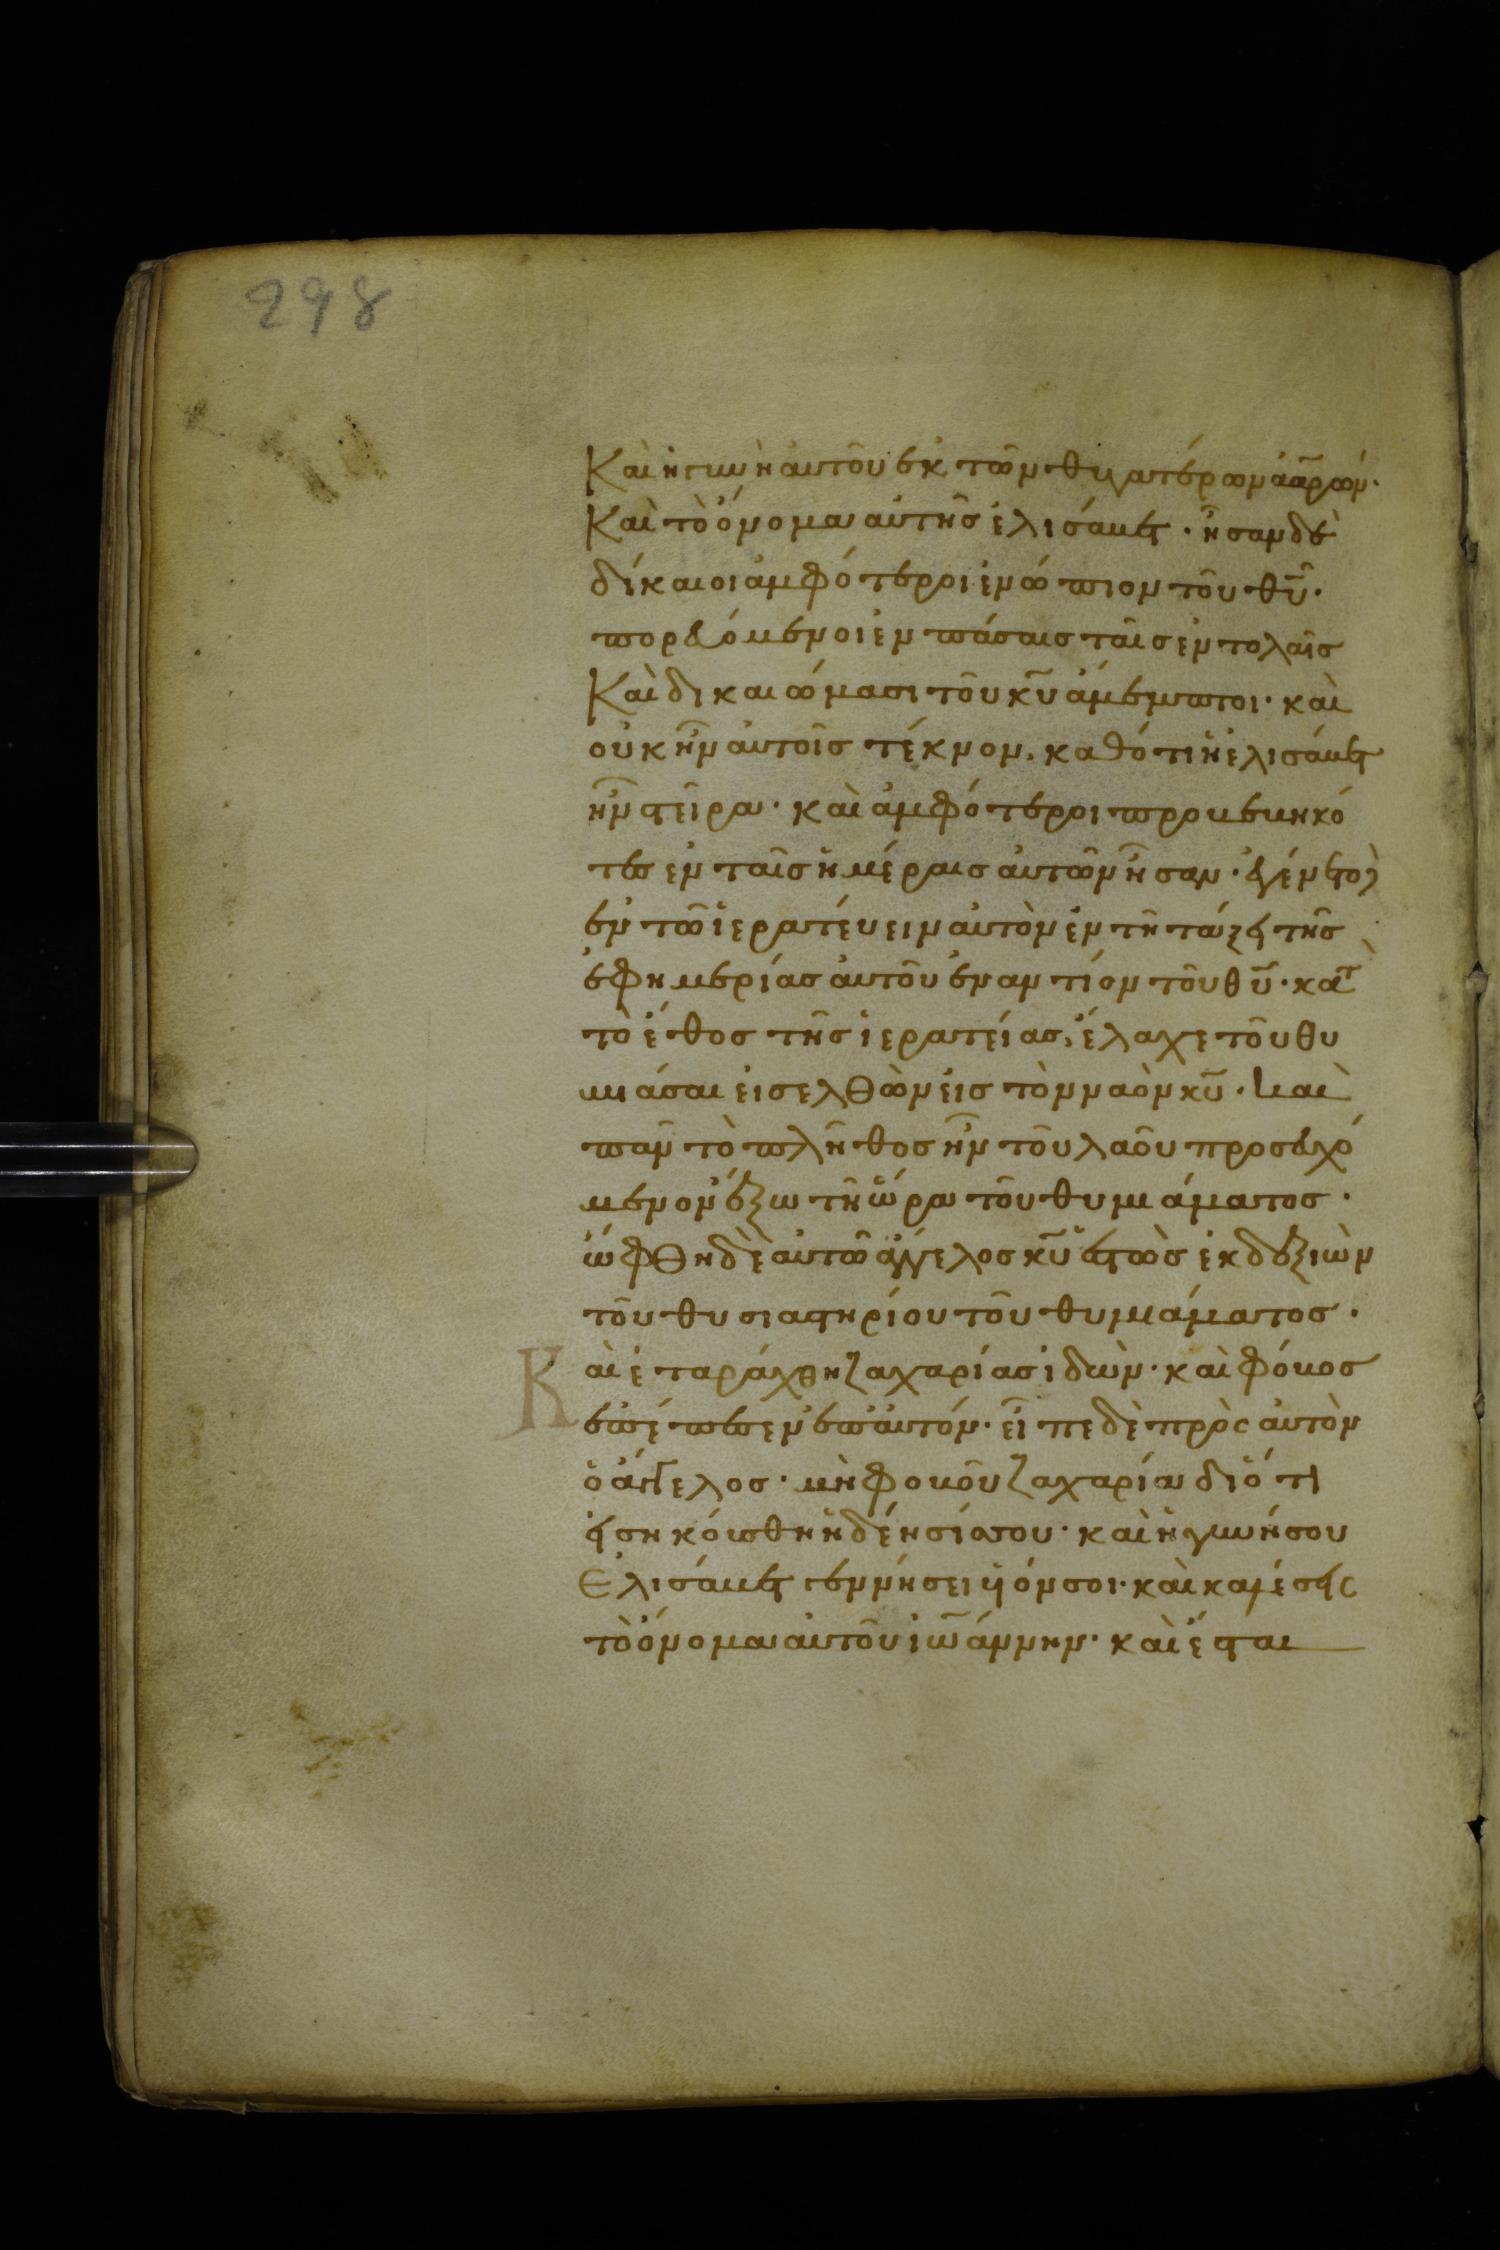 298
Καὶ ἡ γυνὴ ἀυτοῦ ἐκ τῶν θυγατέρων ἀαρών·
Καὶ τὸ ὄνομα αὐτῆς ἐλισάβετ · ἦσαν δὲ
δίκαιοι ἀμφότεροι ἐνώπιον τοῦ θῦ·
πορευόμενοι ἐν πάσαις ταῖς ἐντολαῖς
Καὶ δικαιώμασι τοῦ κῦ ἄμεμπτοι· καὶ
οὐκ ἦν αὐτοῖς τέκνον, καθότι ἡ ἐλισάβετ
ἦν στεῖρα· καὶ ἀμφότεροι προβεβηκό
τες ἐν ταῖς ἡμέραις ἀυτῶν ἦσαν· ἐγένετο δὲ
ἐν τῶ ἱερατέυειν αὐτὸν ἐν τῆ τάξει τῆς
ἐφημερίας ἀυτοῦ ἐναντίον τοῦ θῦ· κατὰ
τὸ ἔθος τῆς ἱερατείας, ἔλαχε τοῦ θυ
μιάσαι εἰσελθὼν εἰς τὸν ναὸν κῦ· καὶ
πᾶν τὸ πλῆθος ἦν τοῦ λαοῦ προσευχό
μενον ἔξω τῆ ὥρα τοῦ θυμιάματος·
ὤφθη δὲ αὐτῶ ἄγγελος κῦ ἑστὼς ἐκ δεξιὼν
τοῦ θυσιαστηρίου τοῦ θυμιάματος·
Καὶ ἐταράχθη ζαχαρίας ἰδὼν· καὶ φόβος
ἐπέπεσεν ἐπ' ἀυτόν· εἶπε δὲ πρὸς ἀυτὸν
ὁ ἄγγελος· μὴ φοβοῦ ζαχαρία διότι
εἰσηκόυσθη ἡ δέησίς σου· καὶ ἡ γυνή σου
Ἐλισάβετ γεννήσει υἱόν σοι· καὶ καλέσεις
τὸ ὄνομα αυτοῦ ἰωάννην· καὶ ἔσται